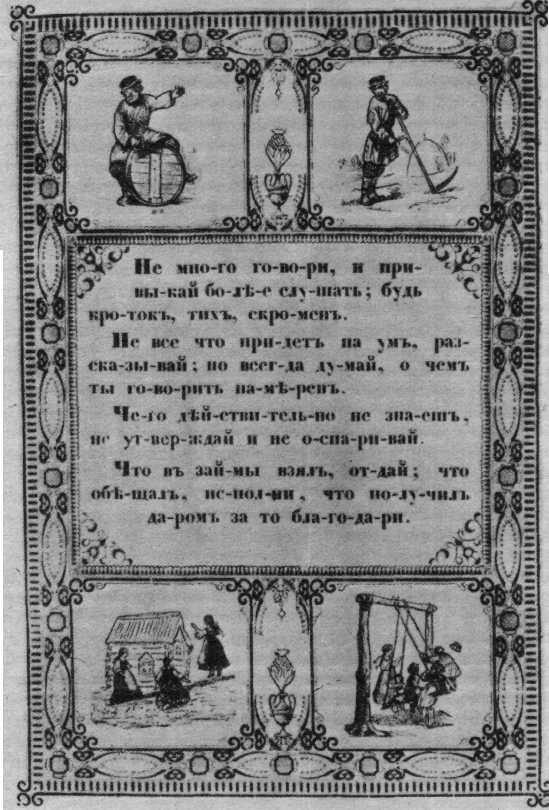 Не мно-го го-во-ри, и при-
вы-кай бо-лѣ-е слу-шать; будь
кро-токъ, тихъ, скро-менъ.
Не все что при-детъ на умъ, раз-
ска-зы-вай; но всег-да ду-май, о чемъ
ты го-во-рить на-мѣ-ренъ.
Че-го дѣй-стви-тель-но не зна-ешь,
не ут-вер-ждай и не о-спа-ри-вай.
Что въ зай-мы взялъ, от-дай; что
обѣ-щалъ, ис-пол-ни, что по-лу-чилъ
да-ромъ за то бла-го-да-ри.